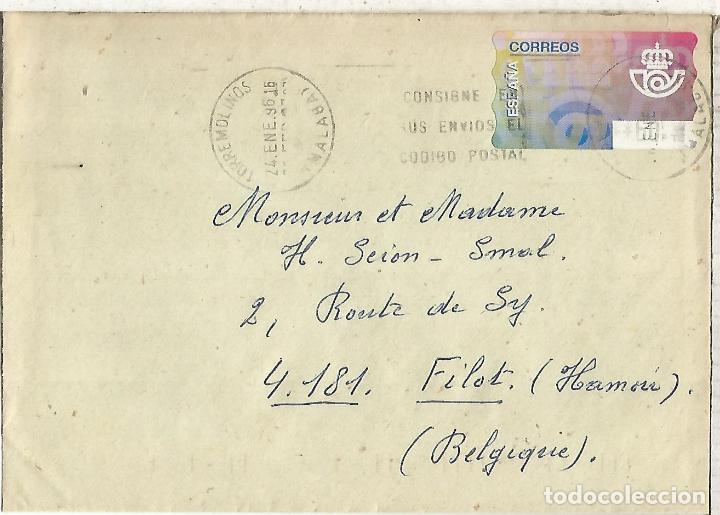 CORREOS
ESPAÑA
TORREMOLINOS
(MALAGA)
24.ENE.96 16
CONSIGNE EN
SUS ENVIOS EL
CODIGO POSTAL
ENE
MALAG
Monsieur et Madame
H. Scion - Smal.
2, Route de Sy.
4.181. Filot. (Hamoir).
(Belgique).
todocoleccion.net